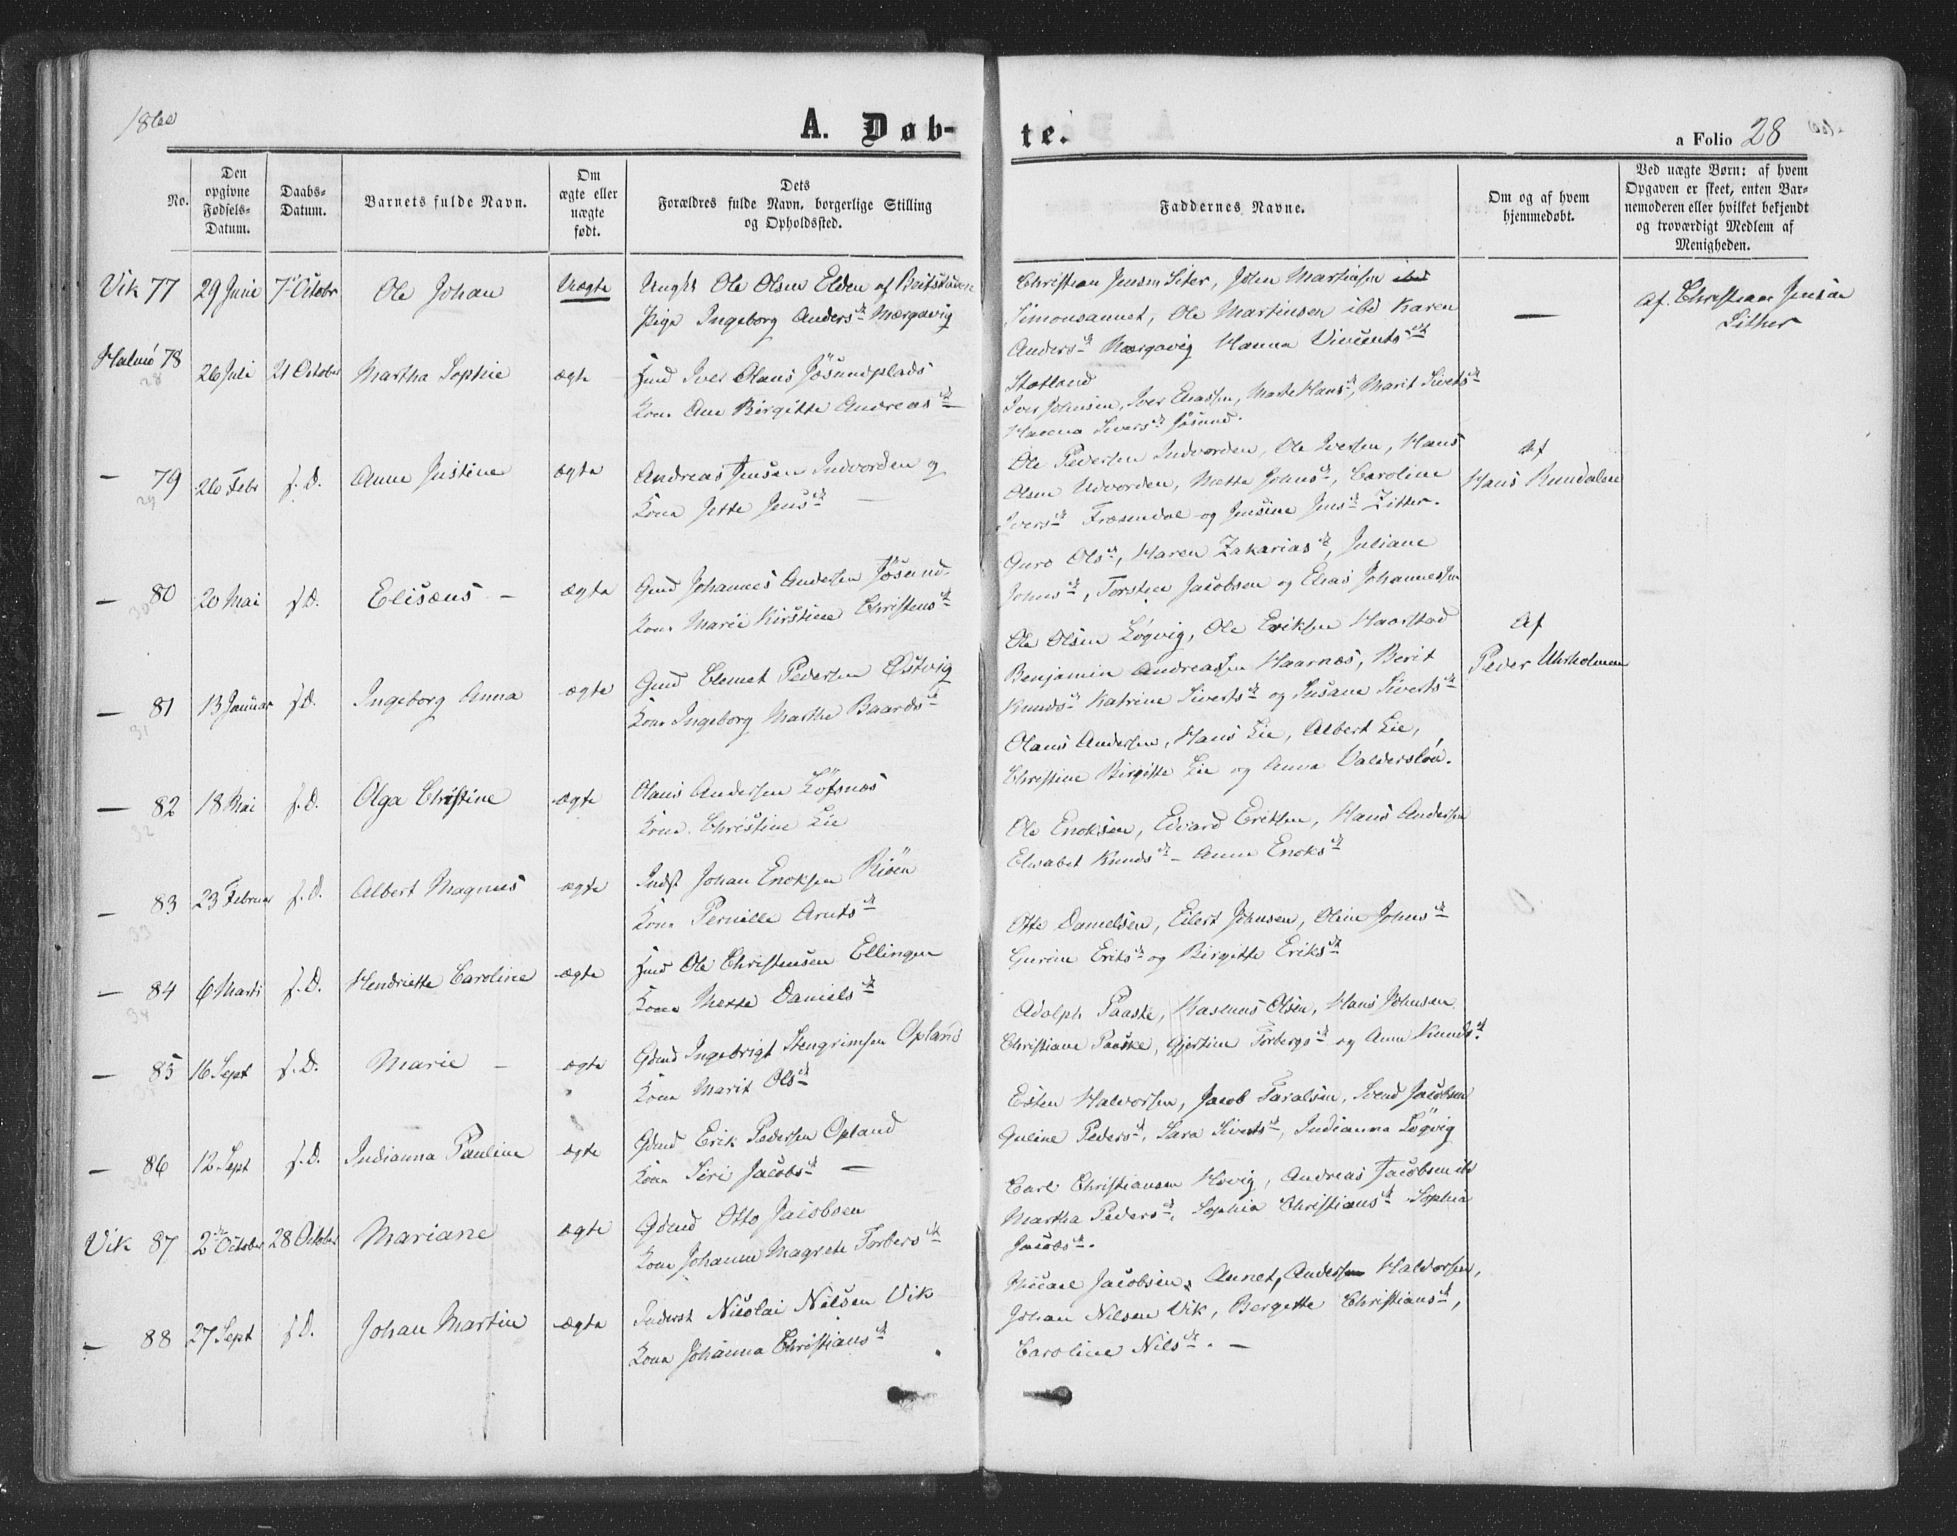 1860
A. Døb-
te.
a Folio 28
No.
Den
opgivne
Fødsels-
Datum.
Daabs-
Datum.
Barnets fulde Navn.
Om
ægte eller
uægte
født.
Dets
Forældres fulde Navn, borgerlige Stilling
og Opholdssted.
Faddernes Navne.
Om og af hvem
hjemmedøbt.
Ved uægte Børn: af hvem
Opgaven er skeet, enten Bar-
nemoderen eller hvilket bekjendt
og troværdigt Medlem af
Menigheden.
Vik 77 29 Junii 7 Octobr Ole Johan Uægte
Ungk Ole Olsen Elden af Beitstaden
Pige Ingeborg Andersdt Mærgavig
Christian Jensen Siter, John Martinsen
Simonsannet, Ole Martinsen ibd Karen
Andersdt Mærgavig Hanna Vincentsdt
Stotland
—
Af. Christian Jensen
Sither
78 26 Juli 21 October Martha Sophie ægte
28
Iver Olaus Jøsundplads
Kone Ane Birgitte Andreasdt
Iver Johnsen, Iver Eliassen, Marte Hansdt, Marit Sivertsdt
Siversdt Jøsund.
— 79 26 Febr s. D. Anne Justine ægte
29
Andreas Jensen Indvorden og
Kone Jette Jensdt —
Ole Pedersen Indvorden, Ole Iversen, Hans
Olsen Udvorden, Mette Johnsdt, Caroline
Iversdt og Jensine Jensdt Zitter.
af
Hans
— 80 20 Mai s. D. Elisæus — ægte
30
Gmd Johannes Andersen Jøsund.
Kone Marie Kirstine Christensdt
Guro Olsdt, Maren Zakariasdt, Juliane
Johnsdt, Torsten Jacobsen og Elias Johannessen
— 81 13 Januar s. D. Ingeborg Anna ægte
31
Gmd Clemet Pedersen Østvig
Kone Ingeborg Marthe Baardsdt
Ole Olsen Løqvig, Ole Eriksen Haarstad
Benjamin Andreassen Haarnæs, Berit
Knudsdt Katrine Sivertsdt og Susane Sivertsdt
Af
Peder Uhrholmen
— 82 18 Mai s. D. Olga Christine ægte
32
Olaus Andersen Löfsnæs
Kone Christine Lie
Olaus Andersen, Hans Lie, Albert Lie,
Christine Birgitte Lie og Anna
— 83 23 Februar s. D. Albert Magnus ægte
33
Indst Johan Enoksen
Kone Pernille Arntsdt
Ole Enoksen, Edvard Eriksen, Hans Andersen
Elisabet Knudsdt — Anne Enoksdt
— 84 6 Marts s. D. Hendriette Caroline ægte
34
Ole Christensen Ellingen
Kone Mette Danielsdt
Otte Danielsen, Eilert Johnsen, Oline Johnsdt
Gurine Eriksdt og Birgitte Eriksdt
— 85 16 Sept s. D. Marie — ægte
35
Gdmd Ingebrigt Stengrimsen Opland
Kone Marit Olsdt
Adolph Paaske, Rasmus Olsen, Hans Johnsen
Christiane Paaske, Gjertine Torbergsdt og Anne Knudsdt.
— 86 12 Sept s. D. Indianna Pauline ægte
36
Gdmd Erik Pedersen Opland
Kone Siri Jacobsdt —
Esten Halvorsen, Jacob Taralsen, Svend Jacobsen
Guline Pedersdt, Sara Sivertsdt, Indianna Løqvig
Vik 87 2 October 28 October Mariane ægte
Gdmd Otto Jacobsen
Kone Johanna Magrete Torbersdt
Carl Christiansen Hovig, Andreas Jacobsen ibd
Martha Pedersdt, Sophia Christiansdt Sophia
Jacobsdt.
— 88 27 Sept s. D. Johan Martin ægte
Inderst Nicolai Nilsen Vik
Kone Johanna Christiansdt
Jacobsen, Annet, Andersen Halvorsen,
Johan Nilsen Vik, Bergette Christiansdt,
Caroline Nilsdt. —